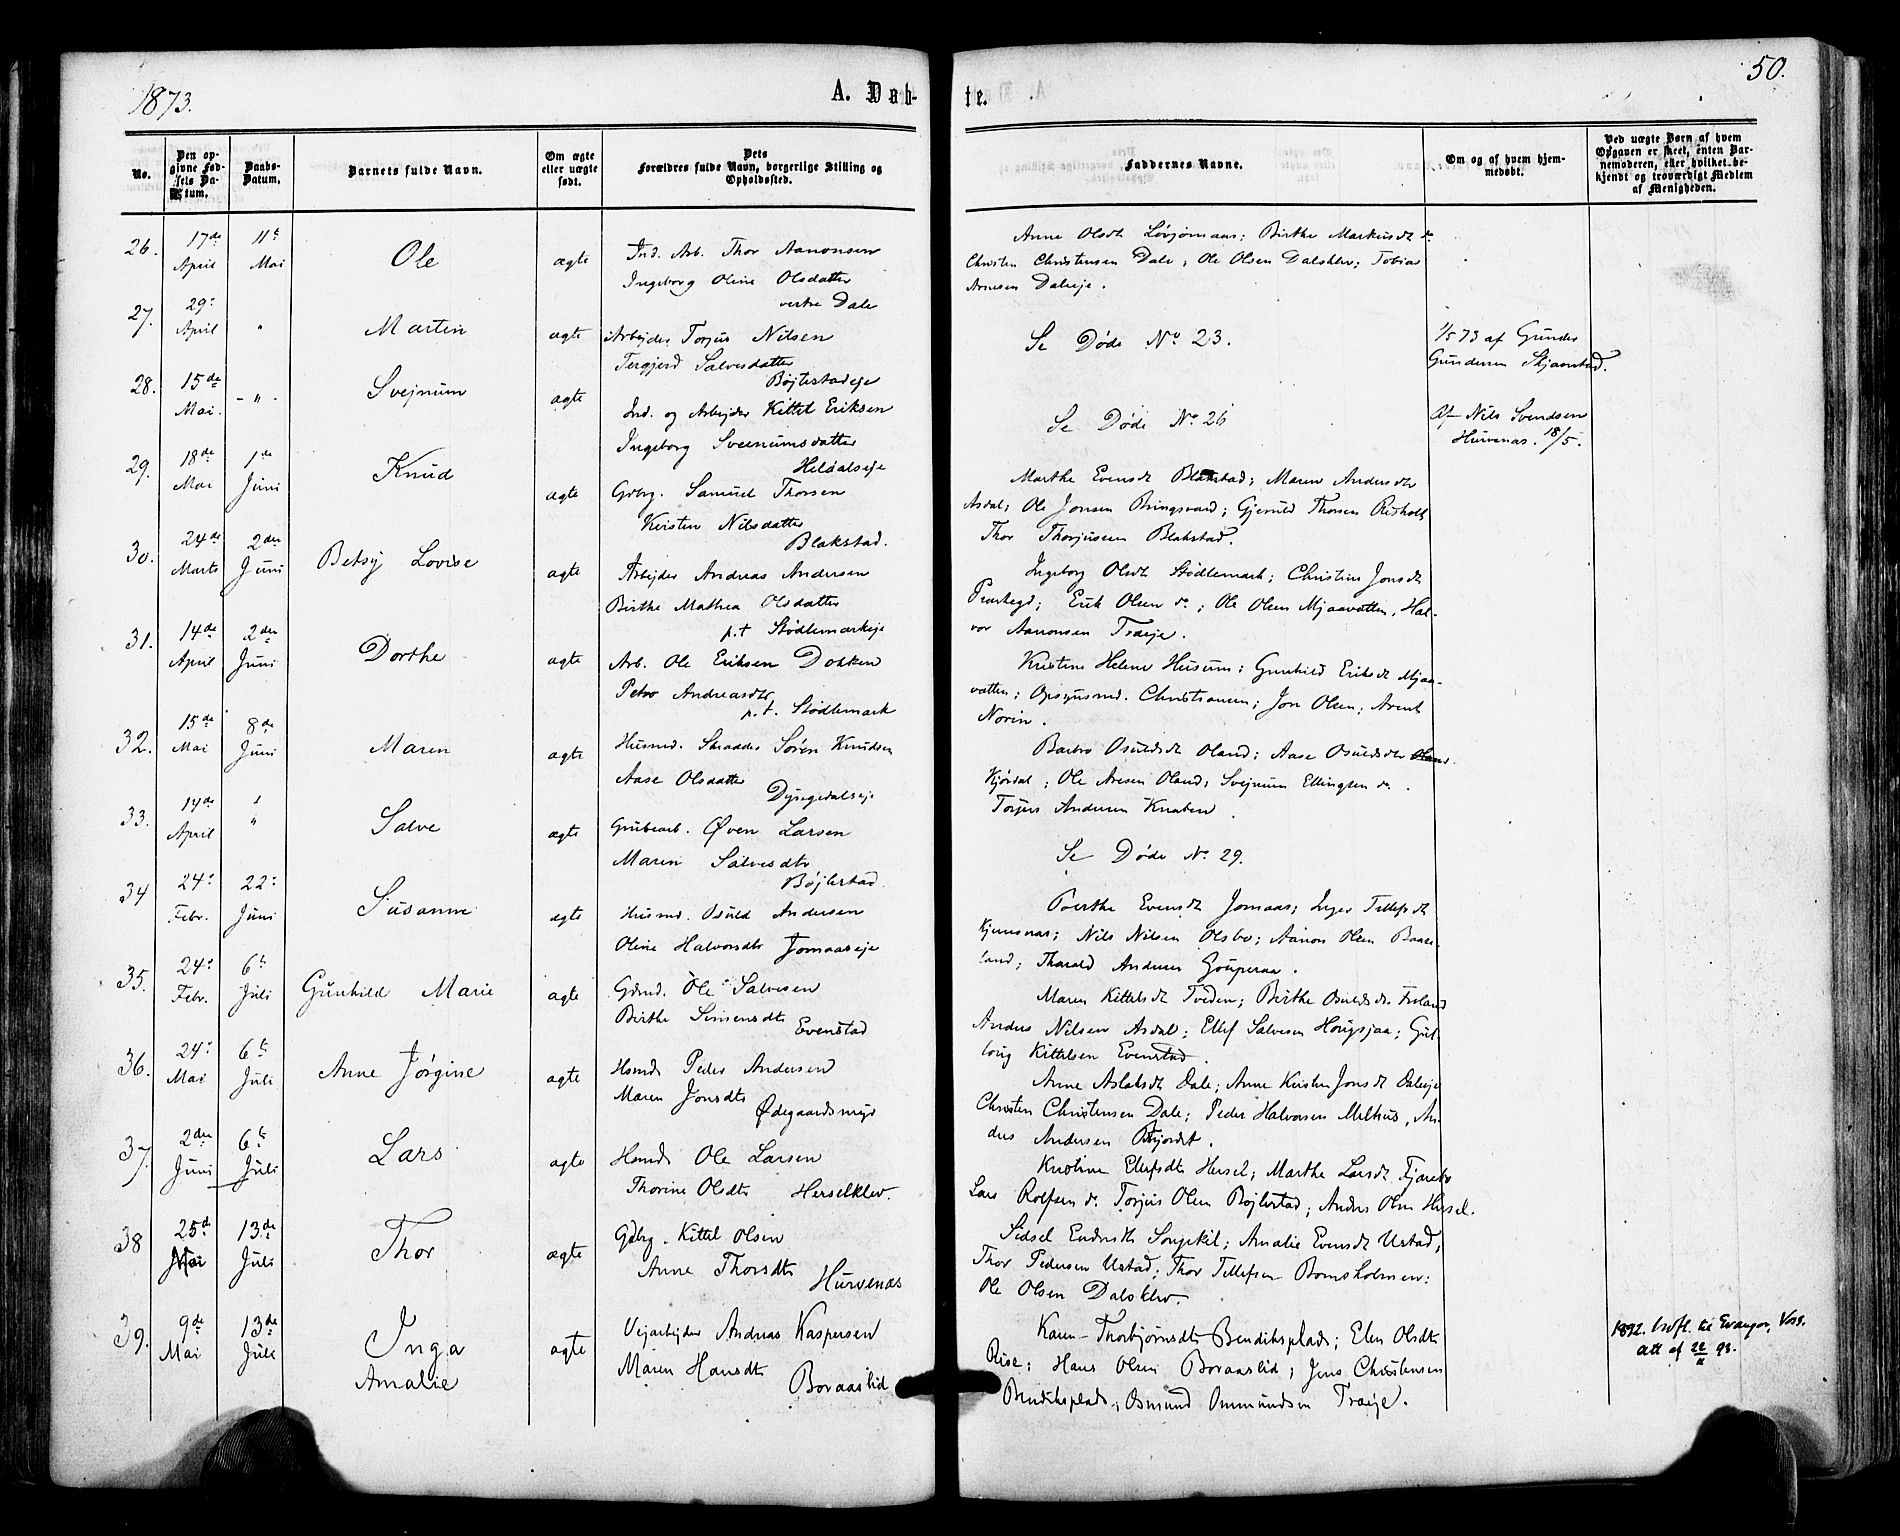 1873.
A. Døb-
te.
50.
No.
Den op-
givne Fød-
sels Da-
tum.
Daabs-
Datum.
Barnets fulde Navn.
Om ægte
eller uægte
født.
Dets
Forældres fulde Navn, borgerlige Stilling og
Opholdssted.
Faddernes Navne.
Om og af hvem hjem-
medøbt.
Ved uægte Børn af hvem
Opgaven er skeet, enten Bar-
nemoderen, eller hvilket be-
kjendt og troværdigt Medlem
af Menigheden.
26.
17de
April
11te
Mai
Ole
ægte
Ind. Arb. Thor Aanonsen
Ingeborg Oline Olsdatter
vestre Dale
Anne Olsdt Birthe Markusdt do
Christen Christensen Dale; Ole Olsen Dalsklev; Tobias
Arnesen Daleeje.
27.
29.
April
"
Martin
ægte
Arbejder Torjus Nilsen
Tergjerd Salvesdatter
Bøjlestadeje
Se Døde No 23.
1/5 73 af Gunder
Gundersen
28.
15de
Mai.
- " -
Svejnum
ægte
Ind. og Arbejder Kittil Eriksen
Ingeborg Sveinumsdatter
Heldalseje
Se Døde No 26
Af Nils Svendsen
Hurvenas. 18/5.
29.
18de
Mai
1de
Juni
Knud
ægte
Gdbrg. Samuel Thorsen
Kirsten Nilsdatter
Blakstad.
Marthe Evensdt Blakstad; Maren Andersdtr
Asdal; Ole Jonsen Bringsvard; Gjeruld Thorsen Risholt
Thor Thorjussen Blakstad.
30.
24de
Marts
2den
Juni
Betsy Lovise
ægte
Arbejder Andreas Andersen
Birthe Mathea Olsdatter
p.t Stødlemarkeje
Ingeborg Olsdt Stødlemark; Christine Jonsdt
Erik Olsen do; Ole Olsen Mjaavatten, Hal-
vor Aanonsen Traeje.
31.
14de
April
2den
Juni
Dorthe
ægte
Arb. Ole Eriksen Dokken
Petro Andreasdtr
p.t. Stødlemark
Kristine Helene Husum; Gunhild Eriksdt Mjaa-
vatten; Opsynsmd. Christiansen; Jon Olsen; Arent
Norin.
32.
15de
Mai
8de
Juni
Maren
ægte
Husmd. Skrædder Søren Knudsen
Aase Olsdatter
Dyngedalseje
Barbro Osuldsdt Oland; Aase Osuldsdtr
Kjørdal; Ole Aresen Oland; Svejnum Ellingsen do.
Torjus Andersen Knaben.
33.
14de
April
"
Salve
ægte
Grubearb. Øven Larsen
Maren Salvesdtr
Bøjlestad.
Se Døde No. 29.
34
24.
Febr.
22.
Juni
Susanne
ægte
Husmd. Osuld Andersen
Oline Halvorsdtr Jomaaseje
Berthe Evensdt Jomaas; Inger Tellefsdt
Nils Nilsen Olsbo; Aanon Olsen Baase-
land; Tharald Andersen
35.
24.
Febr.
6te
Juli
Gunhild Marie
ægte
Gdmd. Ole Salvesen
Birthe Simensdtr
Evenstad
Maren Kittelsdt Tveden; Birthe Osuldsdt Froland
Anders Nilsen Asdal; Ellef Salvesen Hougsjaa; Gut-
torm Kittelsen Evenstad.
36.
24.
Mai
6te
Juli
Anne Jørgine
ægte
Hsmd. Peder Andersen
Maren Jonsdtr
Ødegaardsmyr
Anne Aslaksdt Dale; Anne Kirstine Jonsdt Daleeje
Christen Christensen Dale; Peder Halvorsen Milhus, An-
ders Andersen
37.
2den
Juni
6te
Juli
Lars
ægte
Hsmd. Ole Larsen
Thorine Olsdtr Herselklev.
Kristine Ellefsdtr Hersel; Marthe Larsdt
Lars Rolfsen do Torjus Olsen Bøjlestad; Anders Olsen Hersel.
38
25de
Mai
13de
Juli
Thor
ægte
Gdbrg. Kittel Olsen
Anne Thorsdtr
Hurvenas
Sidsel Endresdtr Songekil; Amalie Evensdt Ustad;
Thor Pedersen Ustad; Thor Tellefsen Bomsholmen;
Ole Olsen Dalsklev.
39.
9de
Mai
13de
Juli
Inga
Amalie
ægte
Vejarbejder Andreas Kaspersen
Maren Hansdtr
Boraaslid
Karen Thorbjørnsdtr Bendiksplads; Elen Olsdtr
Rise; Hans Olsen Boraaslid; Jens Christensen
Bendiksplads; Osmund Ommundsen Traeje.
1892. Indfl. til Evanger, Voss.
Att af 22/11 93.